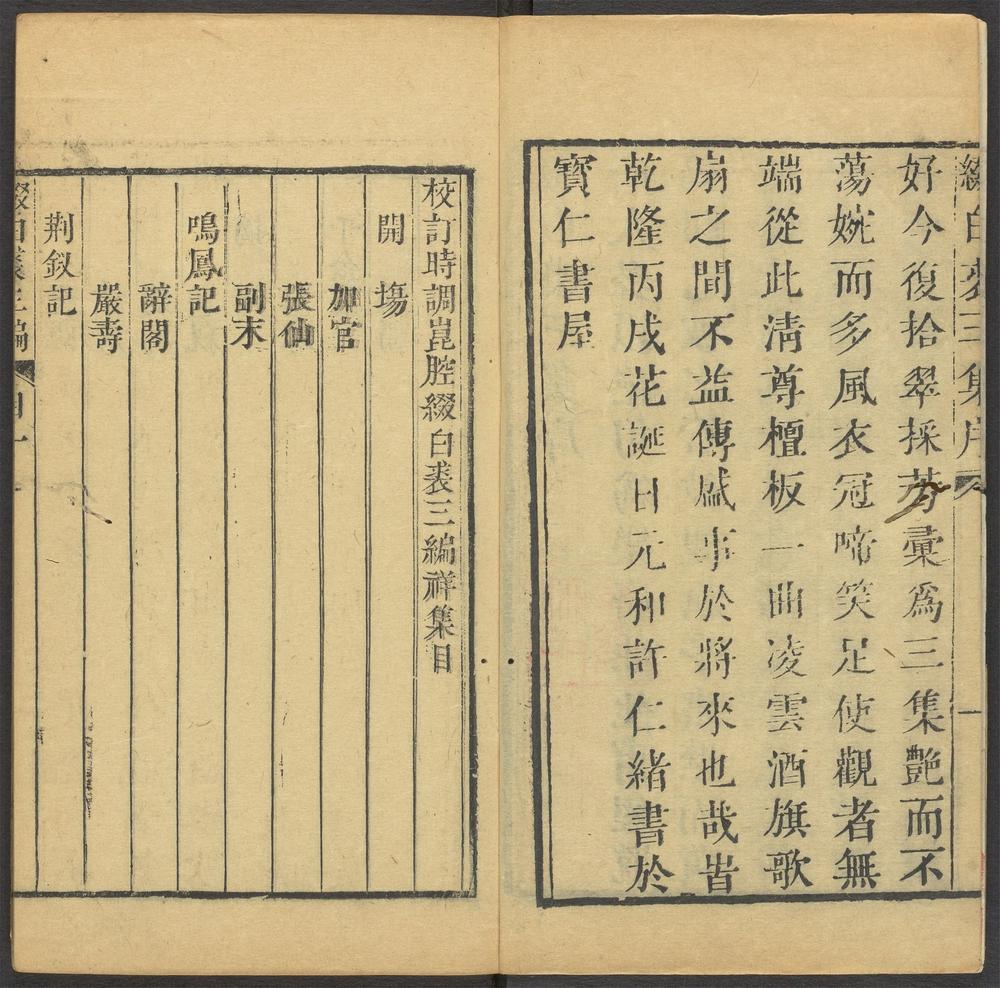 綴白裘三集序 一
好今復拾翠採芳彙爲三集艶而不
蕩婉而多風衣冠啼笑足使觀者無
端從此清尊檀板一曲凌雲酒旗歌
扇之間不益傳盛事於將來也哉旹
乾隆丙戌花誕日元和許仁緒書於
寶仁書屋
校訂時調崑腔綴白裘三編祥集目
開塲
加官
張仙
副末
鳴鳳記
辭閣
嚴壽
荆釵記
綴白裘三編 目 一